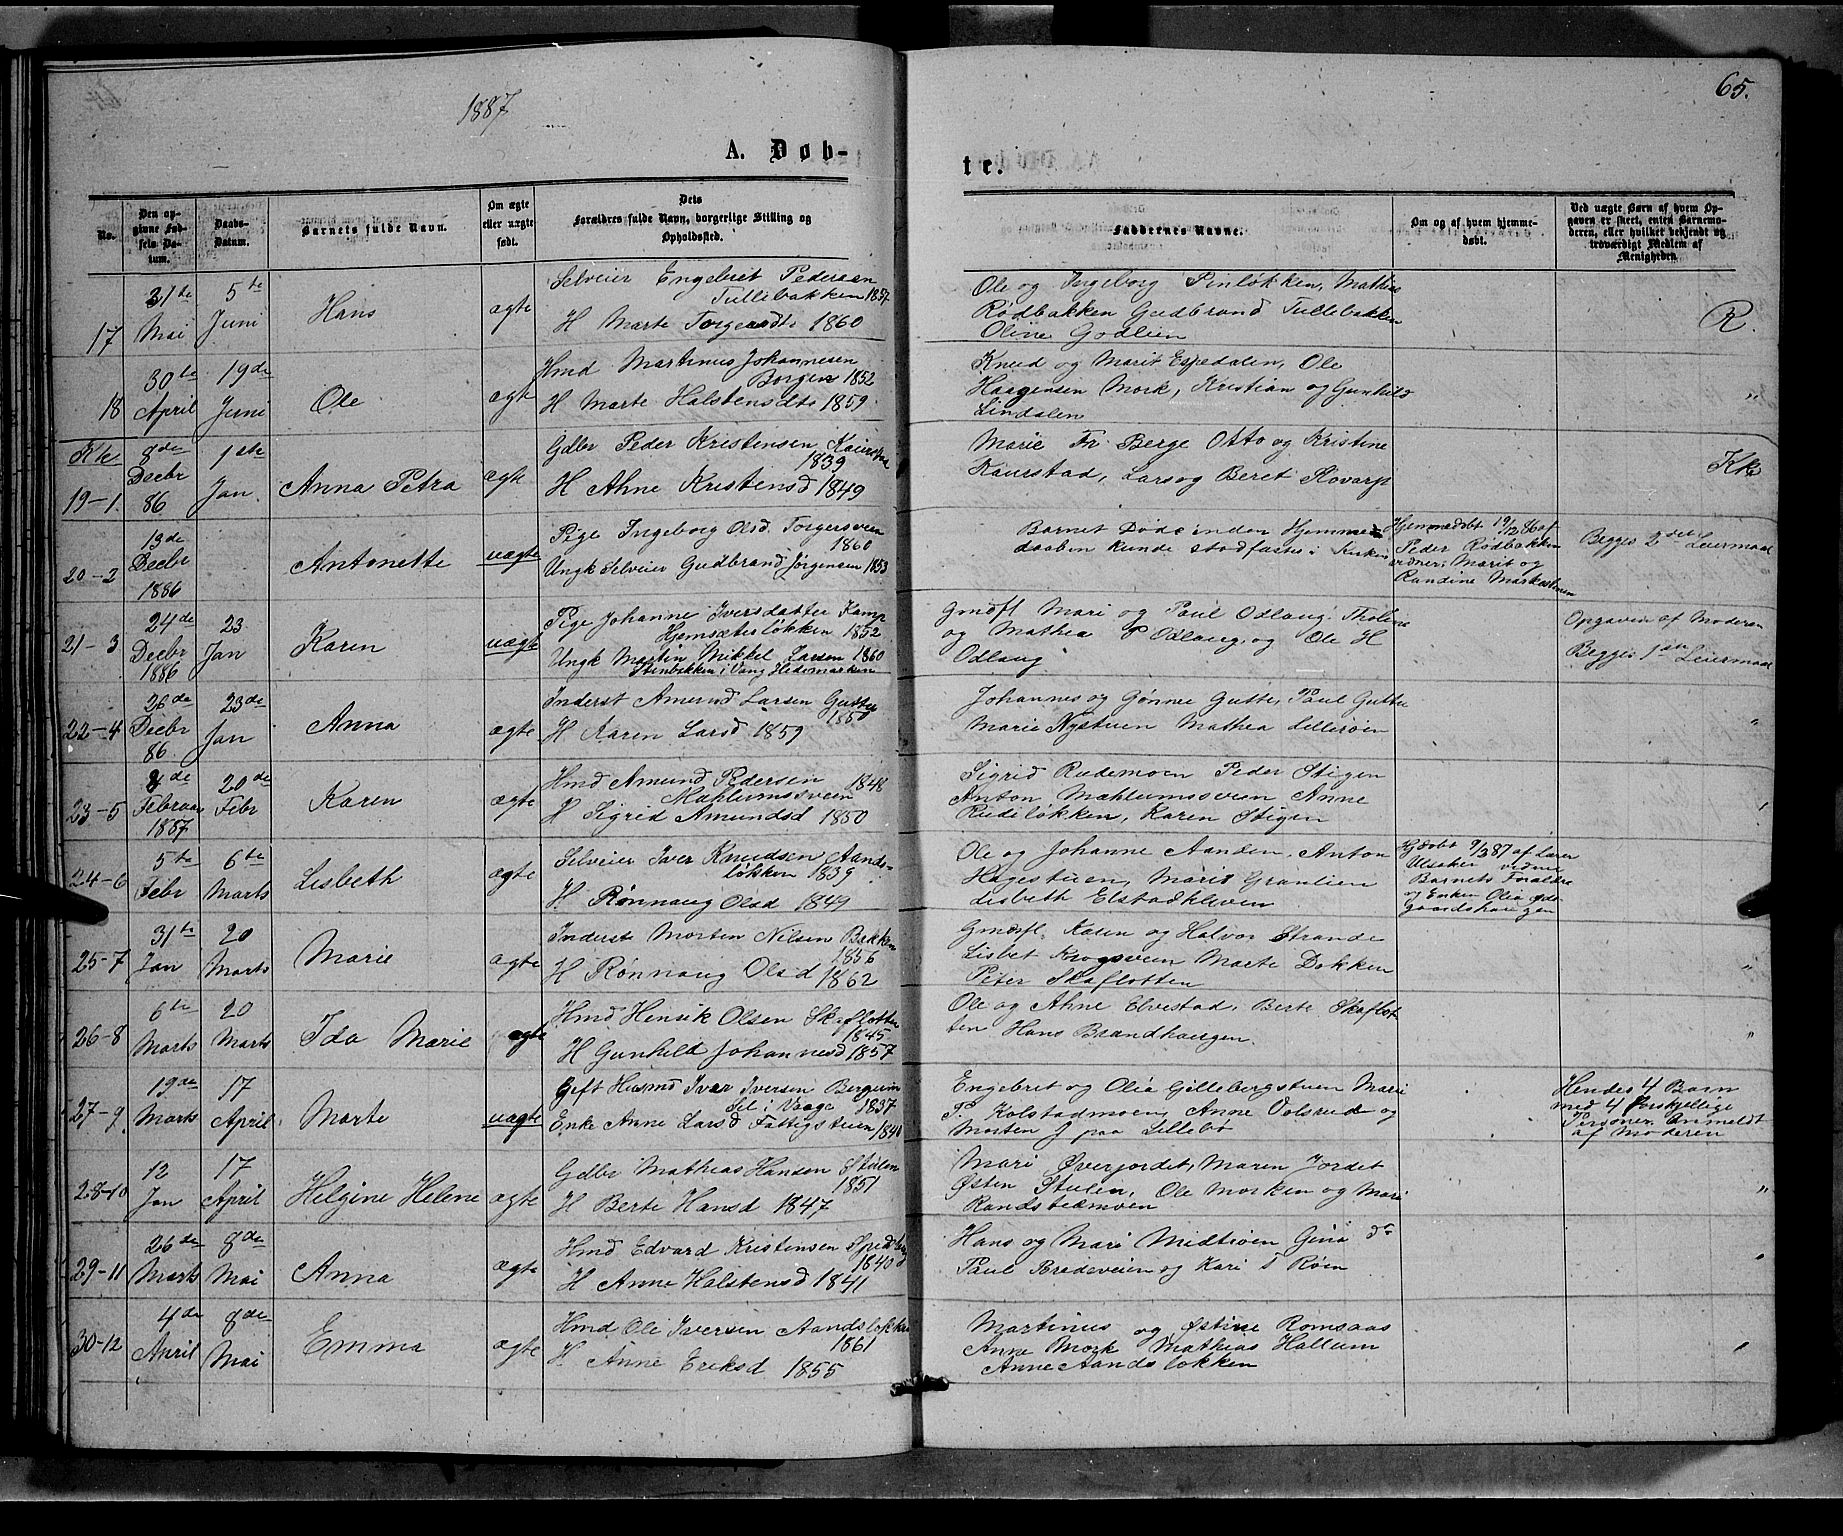 1887
65.
A. Døb-
te.
No.
Den op-
givne Fød-
sels Da-
tum.
Daabs-
Datum.
Barnets fulde Navn.
Om ægte
eller uægte
født.
Dets
Forældres fulde Navn, borgerlige Stilling og
Opholdssted.
Faddernes Navne.
Om og af hvem hjemme-
døbt.
Ved uægte Børn af hvem Op-
gaven er skeet, enten Barnemo-
deren, eller hvilket bekjendt og
troværdigt Medlem af
Menigheden.
17
31te
Mai
5te
Juni
Hans
ægte
Selveier Engebret Pedersen
Tullebakken 1857
H Marte Torgersdtr 1860
Ole og Ingeborg Pinløkken, Mathias
Rødbakken Gudbrand Tullebakken
Oline Godlien
R.
18
30te
April
19de
Juni
Ole
ægte
Hmd Martinus Johannesen
Borgen 1852
H Marte Halstensdtr 1859
Knud og Marit Espedalen, Ole
Haagensen Mork, Kristian og Gunhild
Lindalen
"
Kk
19-1.
8de
Decbr
86
1ste
Jan.
Anna Petra
ægte
Gdbr Peder Kristensen
1839
H Ahne Kristensd 1849
Marie Fr. Berge Otto og Kristine
Kaurstad, Lars og Beret Slovarp
Kk
20-2
19de
Decbr
1886
Antonette
uægte
Pige Ingeborg Olsd. Torgersveen
1860
Ungk Selveier Gudbrand Jørgensen 1853
Barnet Døde inden Hjemme-
daaben kunde stadfæstes i Kirken
Hjemmedøbt 19/12 86 af
Peder Rødbakken
vidner: Marit og
Randine Markestuen
Begges 2det Leiermaal
21-3
24de
Decbr
1886
23
Jan
Karen
uægte
Pige Johanne Iversdatter Kamp
Hemsæterløkken 1852
Ungk Martin Mikkel Larsen 1860
Stenbakken i Vang Hedemarken
Gmdfl Mari og Paul Odlaug. Tholine
og Mathea P Odlaug, og Ole H
Odlaug
Opgaven af Moderen
Begges 1ste Leiermaal
22-4
26de
Decbr
86
23de
Jan
Anna
ægte
Inderst Amund Larsen Gutte
1850
H Karen Larsd 1859
Johannes og Gønner Gutte, Paul Gutte
Marie Nystuen Mathea Lillerøen
"
23-5
8de
Februar
1887
20de
Febr
Karen
ægte
Hmd Amund Pedersen 1848
Mæhlumsveen
H Sigrid Amundsd 1850
Sigrid Rudemoen Peder Stigen
Anton Mæhlumsveen Anne
Rudiløkken, Karen Stigen
"
24-6
5te
Febr
6te
Marts
Lisbeth
ægte
Selveier Iver Knudsen Aands-
løkken 1839
H Rønnaug Olsd 1849
Ole og Johanne Aanden, Anton
Hagestuen, Marit Granlien
Lisbeth Elstadkleven
Hjdøbt 9/2 87 af Lærer
Ulsaker vidner
Barnets Forældre
og Enken Olia øde-
gaardshaugen
25-7
31te
Jan
20
Marts
Marie
ægte
Inderst Morten Nilsen Bakken
1856
H Rønnaug Olsd 1862
Gmdfl. Karen og Halvor Strande
Lisbet Krogsveen Marte Dokken
Peter Skaflotten
"
26-8
6te
Marts
20
Marts
Ida Marie
ægte
Hmd Henrik Olsen Skaflotten
1845
H Gunhild Johannesd 1857
Ole og Ahne Elvestad, Berte Skaflot-
ten Hans Brandhaugen.
"
27-9.
19de
Marts
17
April
Marte
uægte
Gift Husmd Ivar Iversen Bergum
Sel i Vaage 1837
Enke Anne Larsd Fattigstuen 1840
Engebret og Olia Gillebergstuen Mari
P. Kolstadmoen, Anne Volsrud og
Morten J paa Lillebø
Hendes 4 Barn
med 4 forskjellige
Personer Anmeldt
af Moderen
28-10
12
Jan
17
April
Helgine Helene
ægte
Gdbr Mathias Hansen Stulen
1851
H Berte Hansd 1847
Mari Øverjordet, Maren Jordet
Østen Stulen, Ole Morken og Mari
Randsbelmoen
"
29-11
26de
Marts
8de
Mai
Anna
ægte
Hmd Edvard Kristensen
1840
H Anne Halstensd 1841
Hans og Mari Midtiøen Gina do
Paul Bredeveien og Kari T Røen
"
30-12
4de
April
8de
Mai
Emma
ægte
Hmd Ole Iversen Aandsløkken
1861
H Anne Eriksd 1855
Martinus og Østine Romsaas
Anne Mork Mathias Hallum
Anne Aandsløkken
"